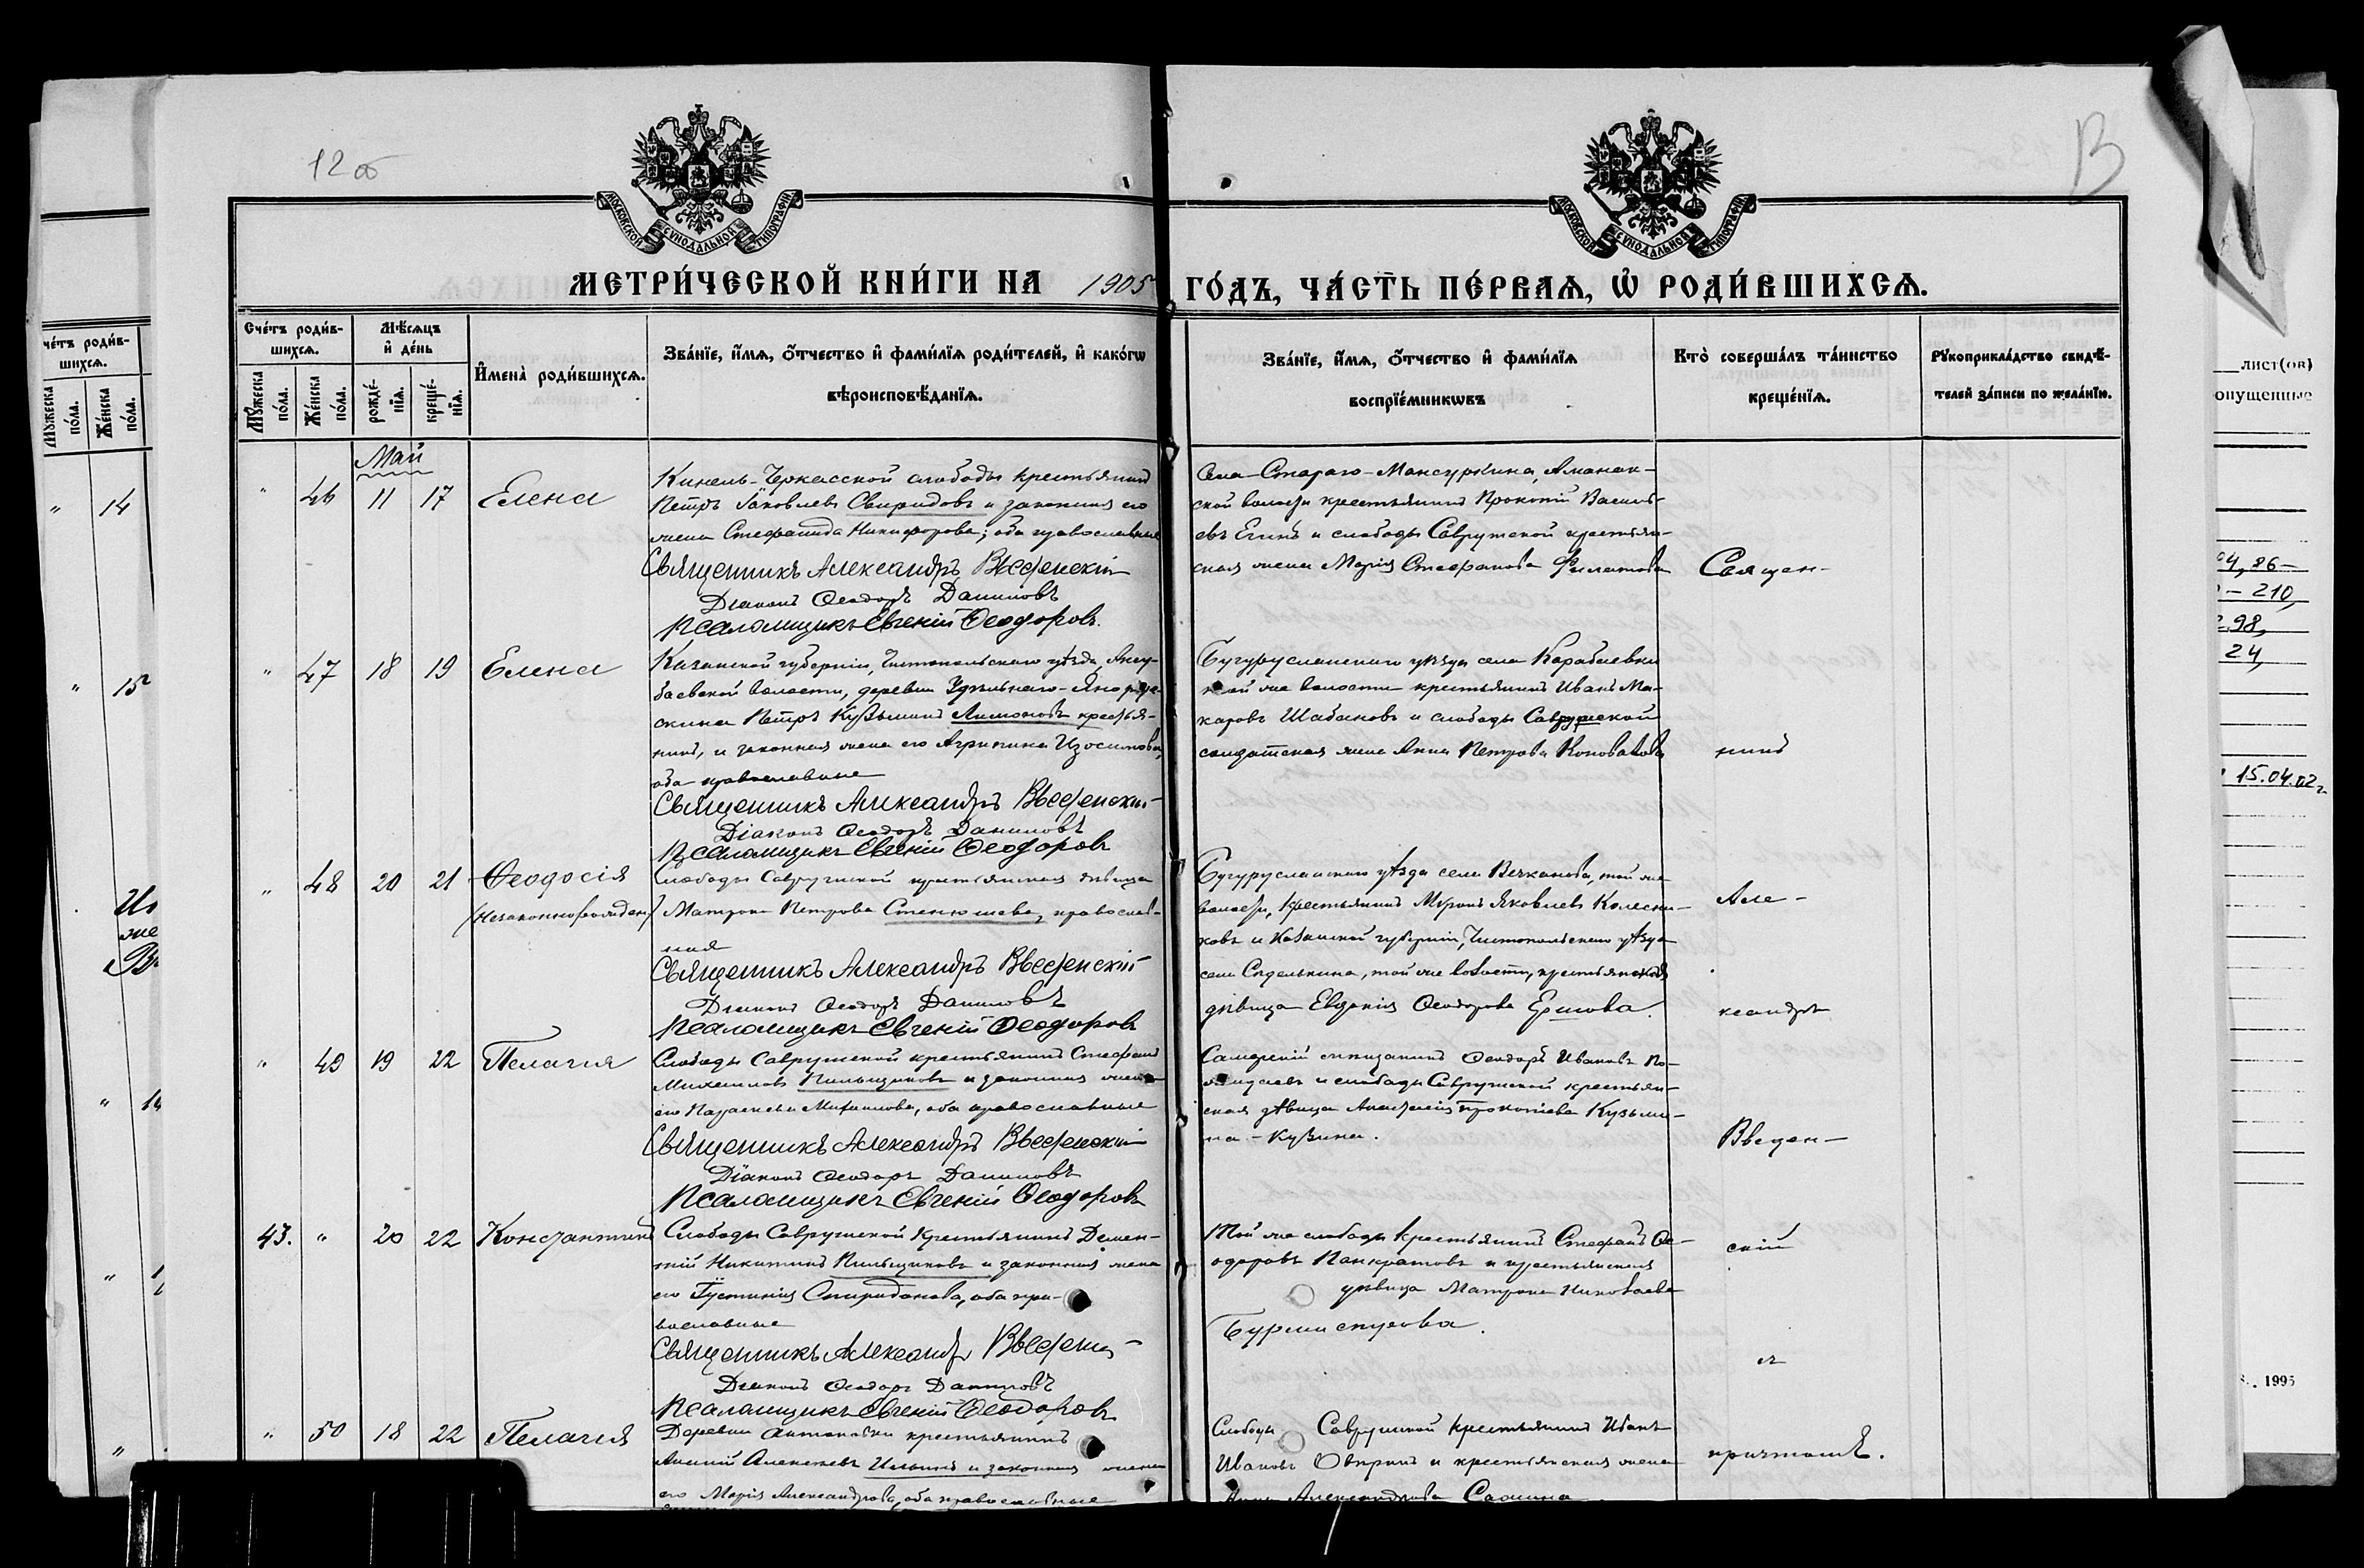 12 об
В
МОСКОВСКОЙ СѴНОДАЛЬНОЙ ТИПОГРАФІИ
МОСКОВСКОЙ СѴНОДАЛЬНОЙ ТИПОГРАФІИ
МЕТРИ́ЧЕСКОЙ КНИ́ГИ НА 1905 ГО́ДЪ, ЧА́СТЬ ПЕ́РВАѦ, Ѡ҆ РОДИ́ВШИХСѦ.
Сче́тъ роди́в-
шихсѧ.
Мꙋ́жеска по́ла.
Же́нска по́ла.
Мѣ́сѧцъ
и҆ де́нь
рожде́-
нїѧ.
креще́-
нїѧ.
И҆мена̀ роди́вшихсѧ.
Зва́нїе, и҆́мѧ, ѻ҆́тчество и҆ фами́лїѧ роди́телей, и҆ како́гѡ
вѣроисповѣ́данїѧ.
Зва́нїе, и҆́мѧ, ѻ҆́тчество и҆ фами́лїѧ
воспрїе́мникѡвъ
Кто̀ соверша́лъ та́инство
креще́нїѧ.
Рꙋкоприкла́дство свидѣ́-
телей за́писи по жела́нїю.
Май
" 46 11 17 Елена
Кинель-Черкасской слободы крестьянинъ
Петръ Іаковлевъ Свиридовъ и законная его
жена Стефанида Никифорова; оба православные
Священникъ Александръ Введенскій
Діаконъ Ѳеодоръ Даниловъ
Псаломщикъ Евгеній Ѳеодоровъ.
Села Стараго-Мансуркина, Аманак-
ской волости крестьянинъ Прокопій Василь-
евъ Егинъ и слободы Саврушской крестьян-
ская жена Марія Стефанова Филатова
Священ-
" 47 18 19 Елена
Казанской губерніи, Чистопольскаго уѣзда, Аксу-
баевской волости, деревни Удѣльнаго-
скина Петръ Кузьминъ Лимоновъ крестья-
нинъ, и законная жена его Агрипина Изосимова,
оба православные
Священникъ Александръ Введенскій
Діаконъ Ѳеодоръ Даниловъ
Псаломщикъ Евгеній Ѳеодоровъ
Бугурусланскаго уѣзда села Карабаевки
той же волости крестьянинъ Иванъ Ма-
каровъ Шабановъ и слободы Саврушской
солдатская жена Анна Петрова Коновалова
никъ
" 48 20 21 Ѳеодосія
(Незаконнорожден)
Слободы Саврушской крестьянская дѣвица
Матрона Петрова Стенюшева, православ-
ная
Священникъ Александръ Введенскій
Діаконъ Ѳеодоръ Даниловъ
Псаломщикъ Евгеній Ѳеодоровъ
Бугурусланскаго уѣзда села Вечканова, той же
волости, крестьянинъ Миронъ Яковлевъ Колесни-
ковъ и Казанской губерніи, Чистопольскаго уѣзда
села Сиделькина, той же волости, крестьянская
дѣвица Евдокія Ѳеодорова Ершова.
Але-
ксандръ
" 49 19 22 Пелагія
Слободы Саврушской крестьянинъ Стефанъ
Михаиловъ Пильщиковъ и законная жена
его Параскева Михаилова, оба православные
Священникъ Александръ Введенскій
Діаконъ Ѳеодоръ Даниловъ
Псаломщикъ Евгеній Ѳеодоровъ
Самарскій мѣщанинъ Ѳеодоръ Ивановъ
и слободы Саврушской крестьян-
ская дѣвица Анастасія Прокопіева Кузьми-
на-Кузина.
Введен-
43. " 20 22 Константинъ
Слободы Саврушской крестьянинъ Демен-
тій Никитинъ Пильщиковъ и законная жена
его Іустинія Спиридонова, оба пра-
вославные
Священникъ Александръ Введенскій
Діаконъ Ѳеодоръ Даниловъ
Псаломщикъ Евгеній Ѳеодоровъ
Той же слободы крестьянинъ Стефанъ Ѳе-
одоровъ Панкратовъ и крестьянская
дѣвица Матрона Николаева
Бурмистрова.
скій
съ
" 50 18 22 Пелагія
Деревни Антоновки крестьянинъ
Алексѣевъ Ильинъ и законная жена
его Марія Александрова, оба православные
Слободы Саврушской крестьянинъ Иванъ
Ивановъ и крестьянская жена
Анна Александрова
причтомъ.
че́тъ роди́в-
шихсѧ.
Мꙋ́жеска по́ла.
Же́нска по́ла.
" 14
" 15
лист(ов)
опущенные
04, 86-
- 210,
298,
24,
15.04.02г
1995